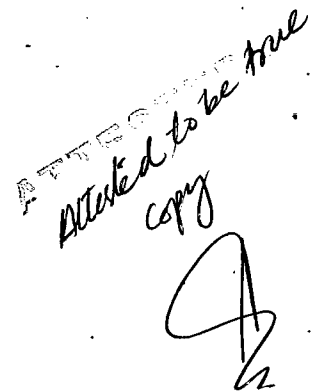 ATTESTED
Attested to be true
copy